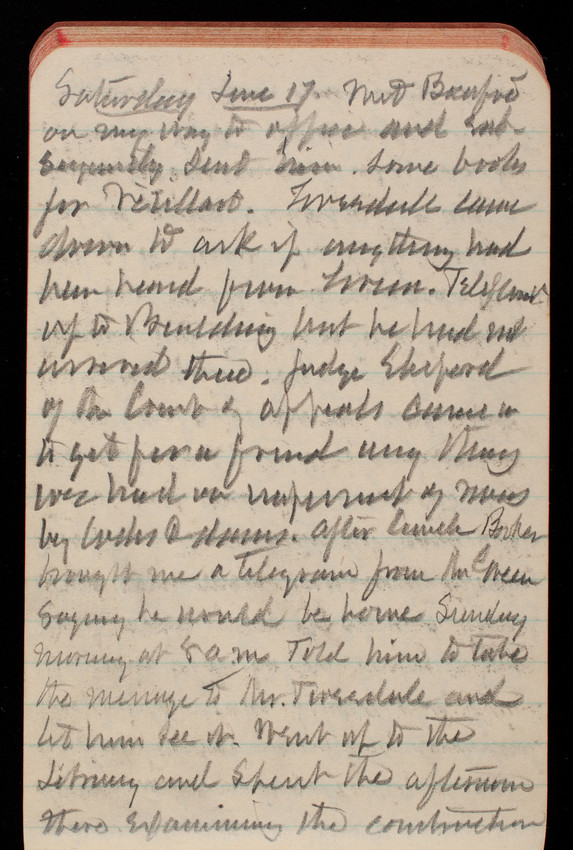 Saturday June 17. Met
on my way to office and sub-
sequently sent him some books
for came
down to ask if anything had
been heard from Green. Teleph
up to Building but he had not
arrived there. Judge Sheperd
of the Court of appeals came in
to get for a friend any thing
we had on improvement of rivers
by locks & dams. After lunch
brought me a telegram from Mr Green
saying he would be home Sunday
morning at 8 a m Told him to take
the message to Mr. and
let him see it. Went up to the
Library and spent the afternoon
there examining the construction